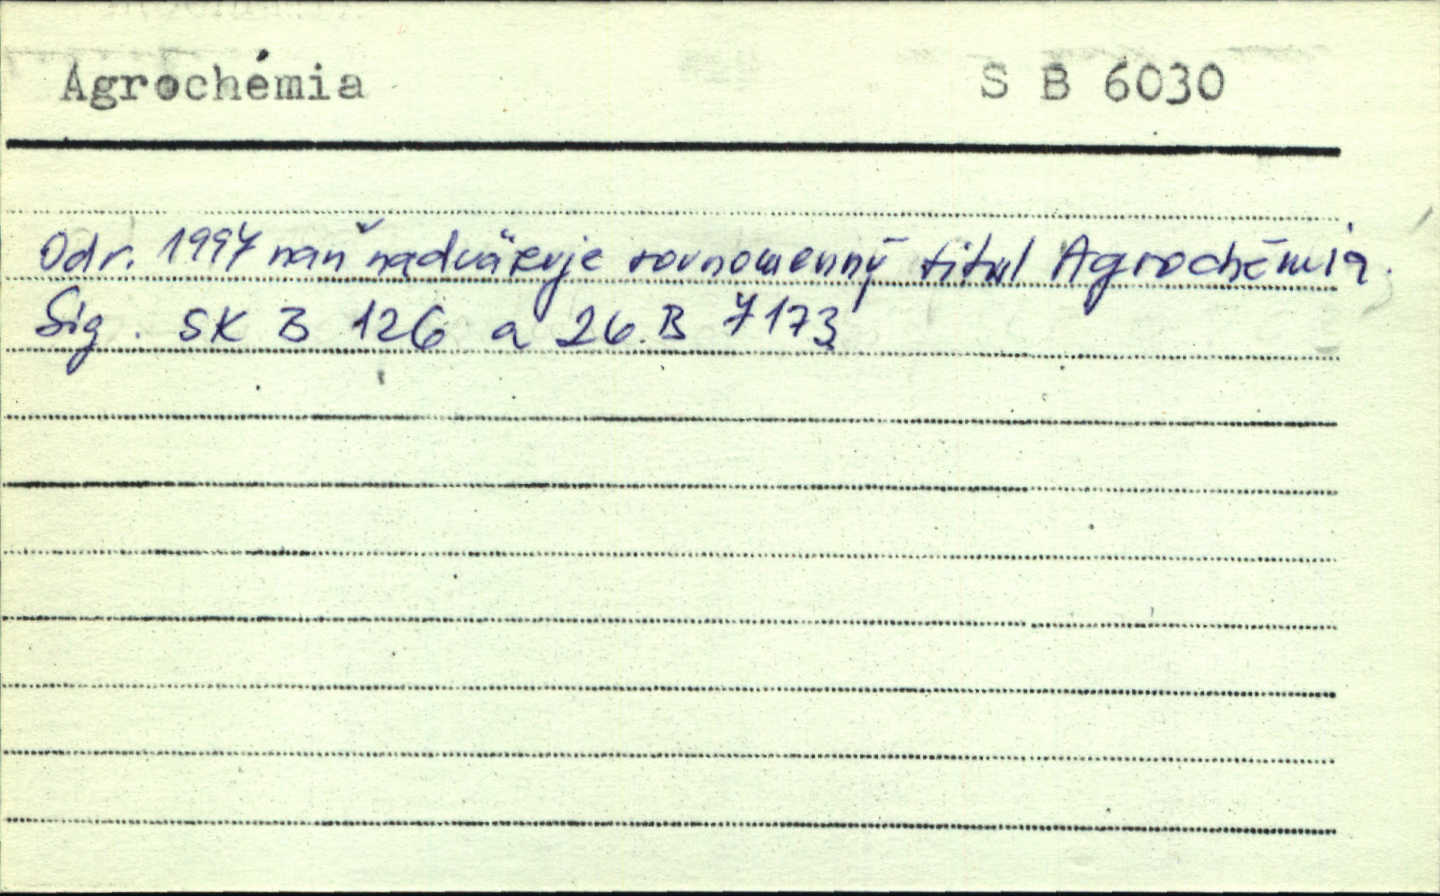 Agrochémia S B 6030
Od r. 1997 naň nadväzuje rovnomenný titul Agrochémia.
Sig. SK B 126 a 26.B 7173